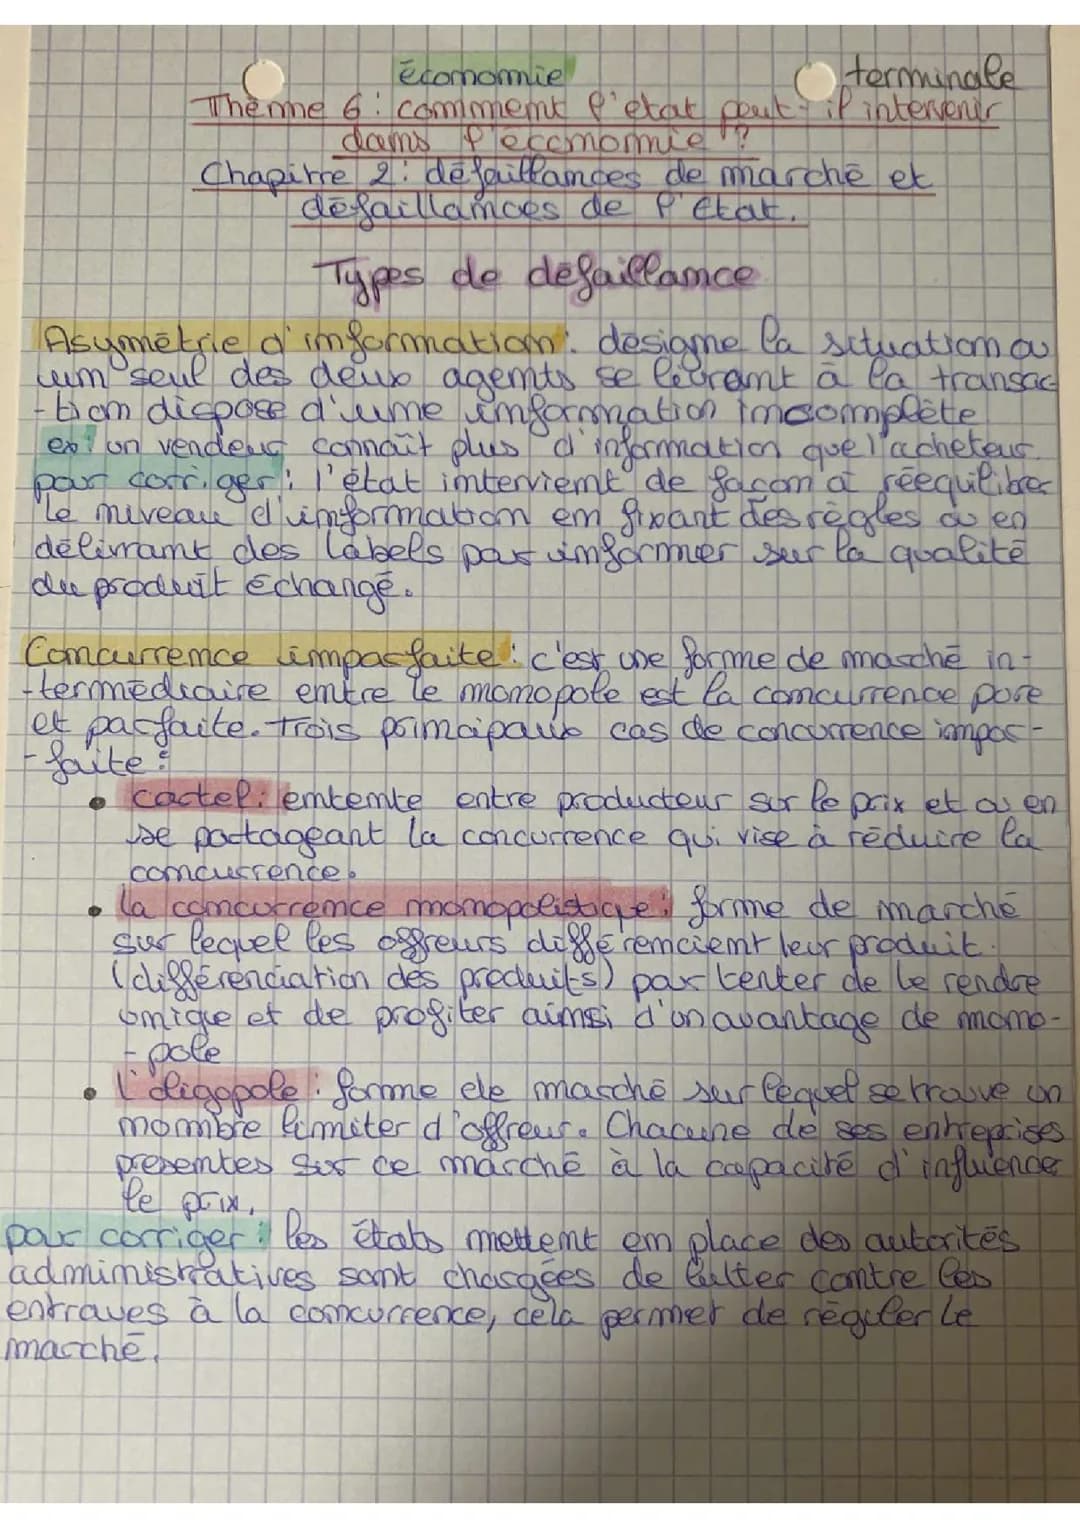 économie
terminale
Thème 6 : comment l'état peut-il intervenir
dans l'économie ?
Chapitre 2 : défaillances de marché et
défaillances de l'Etat.
Types de défaillance
Asymétrie d'information : désigne la situation ou
un seul des deux agents se livrant à la transac-
-tion dispose d'une information incomplète
ex : un vendeur connaît plus d'information que l'acheteur.
pour corriger : l'état intervient de façon à rééquilibrer
le niveau d'information en fixant des règles ou en
délivrant des labels pour informer sur la qualité
du produit échangé.
Concurrence imparfaite : c'est une forme de marché in-
-termédiaire entre le monopole est la concurrence pure
et parfaite. Trois principaux cas de concurrence impar-
-faite :
• cartel : entente entre producteur sur le prix et ou en
se partageant la concurrence qui vise à réduire la
concurrence.
• la concurrence monopolistique : forme de marché
sur lequel les offreurs différencient leur produit.
(différenciation des produits) pour tenter de le rendre
unique et de profiter ainsi d'un avantage de mono-
-pole
• l'oligopole : forme de marché sur lequel se trouve un
nombre limiter d'offreur. Chacune de ses entreprises
presentes sur ce marché à la capacité d'influence
le prix.
pour corriger : les états mettent en place des autorités
administratives sont chargées de lutter contre les
entraves à la concurrence, cela permet de réguler le
marché.